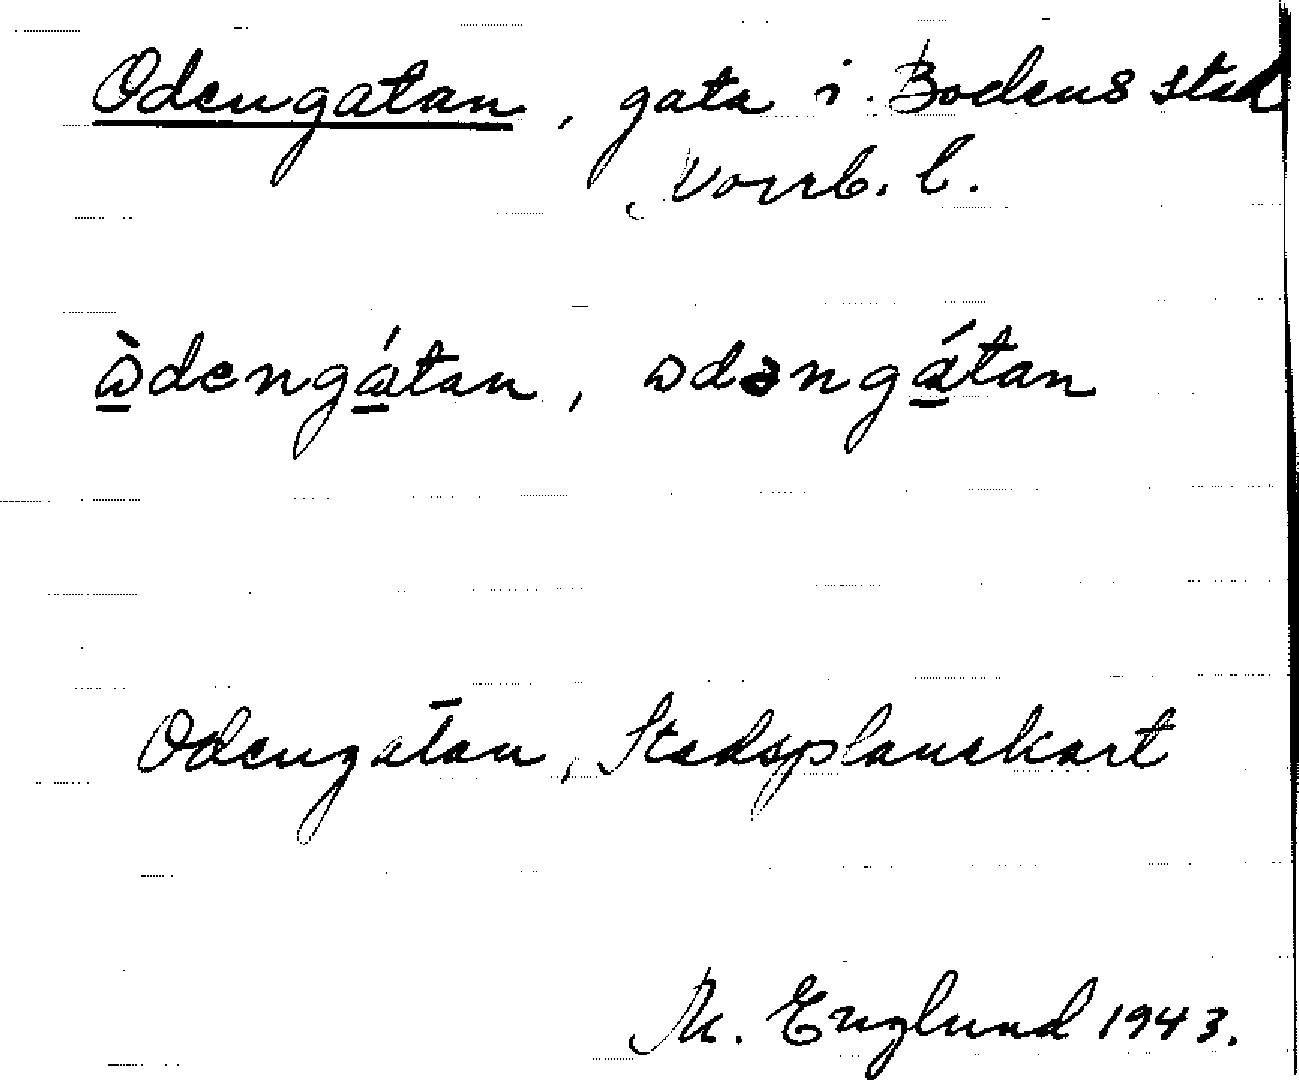 Odengatan, gata i Bodens stad
Norrb. l.
òdengátan, odəngátan
Odengatan, Stadsplanekart
M. Englund 1943.